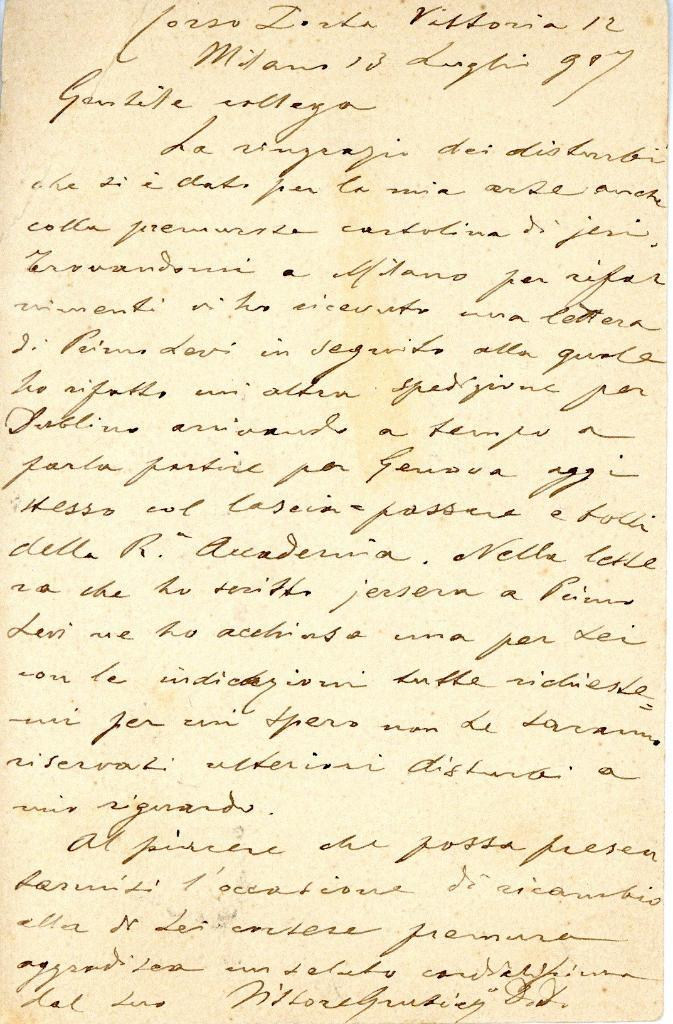 Corso Porta Vittoria 12
Milano 13 Luglio 907
Gentile collega
La ringrazio dei disturbi
che si è dato per la mia arte anche
colla premurosa cartolina di jeri.
Trovandomi a Milano per rifor
nimenti vi ho ricevuto una lettera
di Primo Levi in seguito alla quale
ho rifatto un altra spedizione per
Dublino arrivando a tempo a
farla partire per Genova oggi
stesso col lascia=passare e bolli
della R.a Accademia. Nella lette
ra che ho scritto jersera a Primo
Levi ne ho acchiusa una per Lei
con le indicazioni tutte richieste=
mi per cui spero non Le saranno
riservati ulteriori disturbi a
mio riguardo.
Al piacere che possa presen
tarmisi l'occasione di ricambio
alla di Lei cortese premura
aggradisca un saluto cordialissimo
dal suo Vittore Grubicy